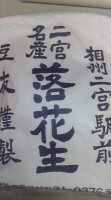 相州二宮駅前
二宮名産
落花生
豆友謹製